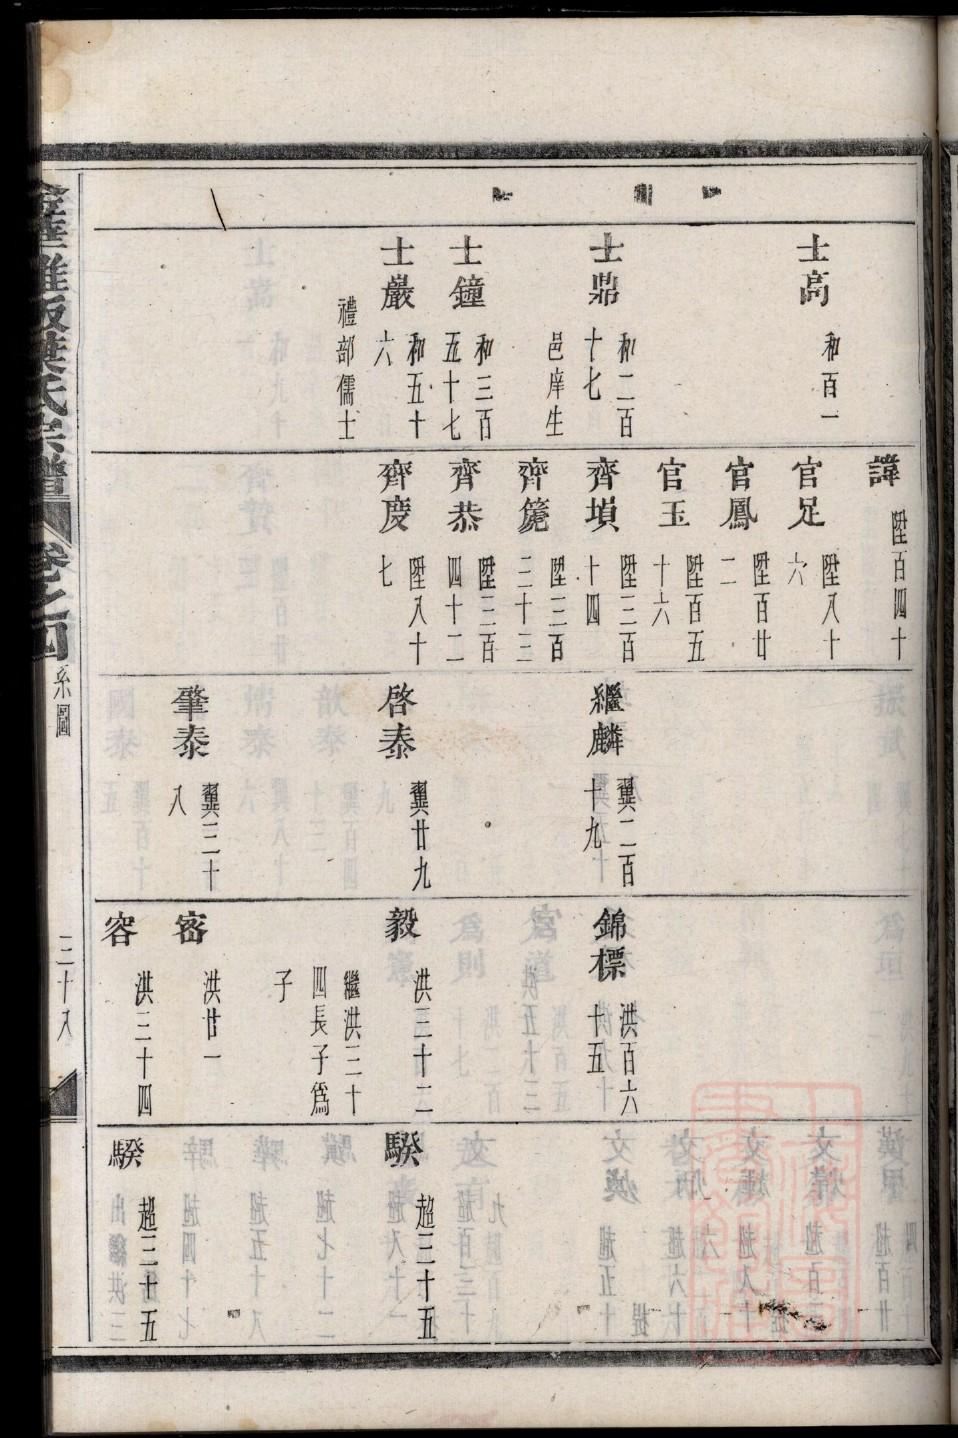 士高 和百一
士鼎 和二百十七
邑庠生
士鐘 和三百五十七
士巖 和五十六
禮部儒士
諱 陞百四十
官足 陞八十六
官鳳 陞百廿二
官玉 陞百五十六
齊塤 陞三百十四
齊箎 陞三百三十三
齊恭 陞三百四十二
齊慶 陞八十七
繼麟 翼二百十九
啓泰 翼廿九
肇泰 翼三十八
錦標 洪百六十五
毅 洪三十二
繼洪三十四長子為子
密 洪廿一
容 洪三十四
騤 超三十五
騤 超三十五
金華 葉氏宗譜 卷之四 系圖 三十八